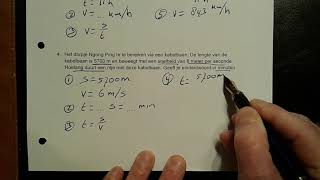 ② V = ... km/h
③ V = s/t
⑤ V = 843 km/h
4. Het dorpje Ngong Ping is te bereiken via een kabelbaan. De lengte van de
kabelbaan is 5700 m en beweegt met een snelheid van 6 meter per seconde.
Hoelang duurt een ritje met deze kabelbaan. Geef je eindantwoord in minuten
① s = 5700m
V = 6 m/s
② t = ... s = ... min
③ t = s/v
④ t = 5700m